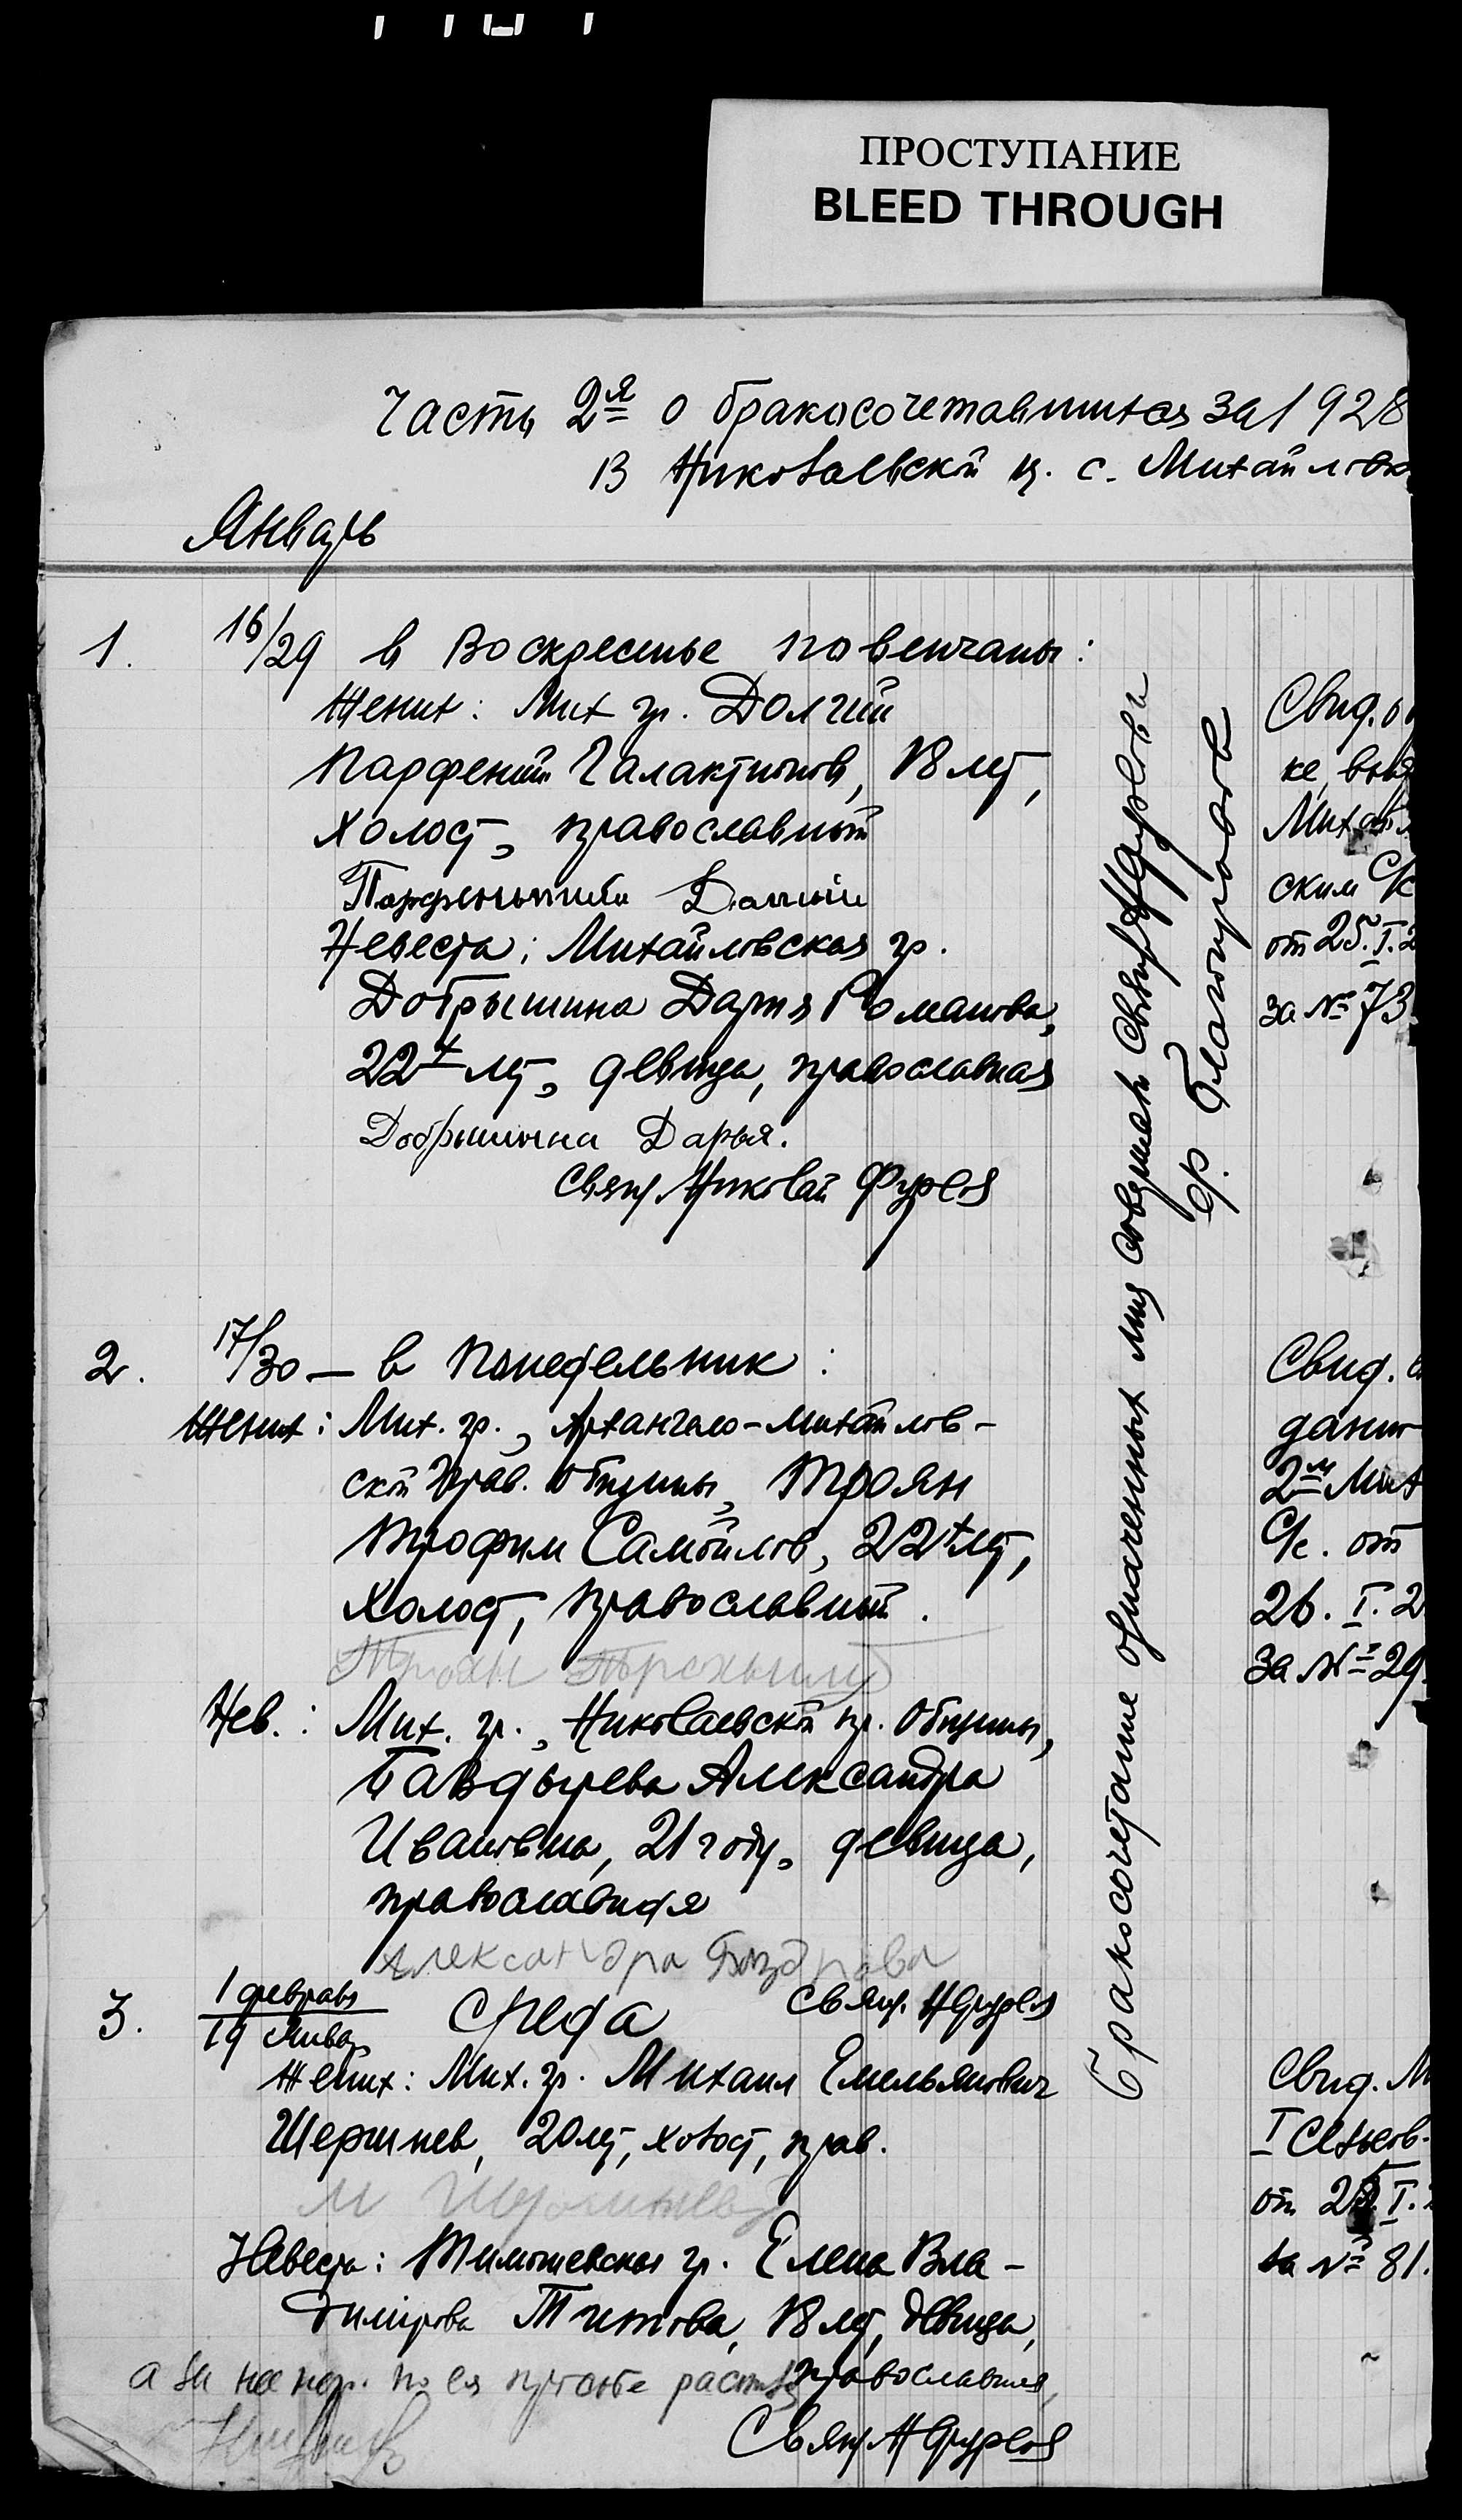 ПРОСТУПАНИЕ
BLEED THROUGH
Часть 2я о бракосочетавшихся за 1928
в Николаевской ц. с. Михайловк
Январь
1. 16/29 в Воскресенье повенчаны:
Жених: Мих гр. Долгий
Парфений Галактионов, 18 лет,
холост, православный
Долгий
Невеста: Михайловская гр.
Добрынина Дарья Романова,
22х лет, девица, православная
Добрынина Дарья.
Свящ Николай Фурсов
2. 17/30 — в Понедельник:
Жених: Мих. гр., Архангело-Михайлов-
ской Прав. Общины, Троян
Трофим Самойлов, 22х лет,
холост, православный.
Троян
Нев.: Мих. гр., Николаевской пр. Общины,
Баздырева Александра
Ивановна, 21 году, девица,
православная
Александра
Свящ. Н Фурсов
3. 1 февраля
19 Январ
Среда
Жених: Мих. гр. Михаил Емельянович
Шершнев, 20 лет, холост, прав.
М
Невеста: Тимошевская гр. Елена Вла-
димирова Титова, 18 лет, девица,
православная,
а за нее негр. по ея просьбе распис
Свящ Н Фурсов
Бракосочетание означенных лиц совершал Священ Н Фурсов
Свид. о
ке, выд
Михайл
ским С/с
от 25. I. 2
за № 73
Свид. в
данно
2м Мих
С/с. от
26. I. 2
за № 29
Свид. М
I Сельсов.
от 2 I.
за № 81.